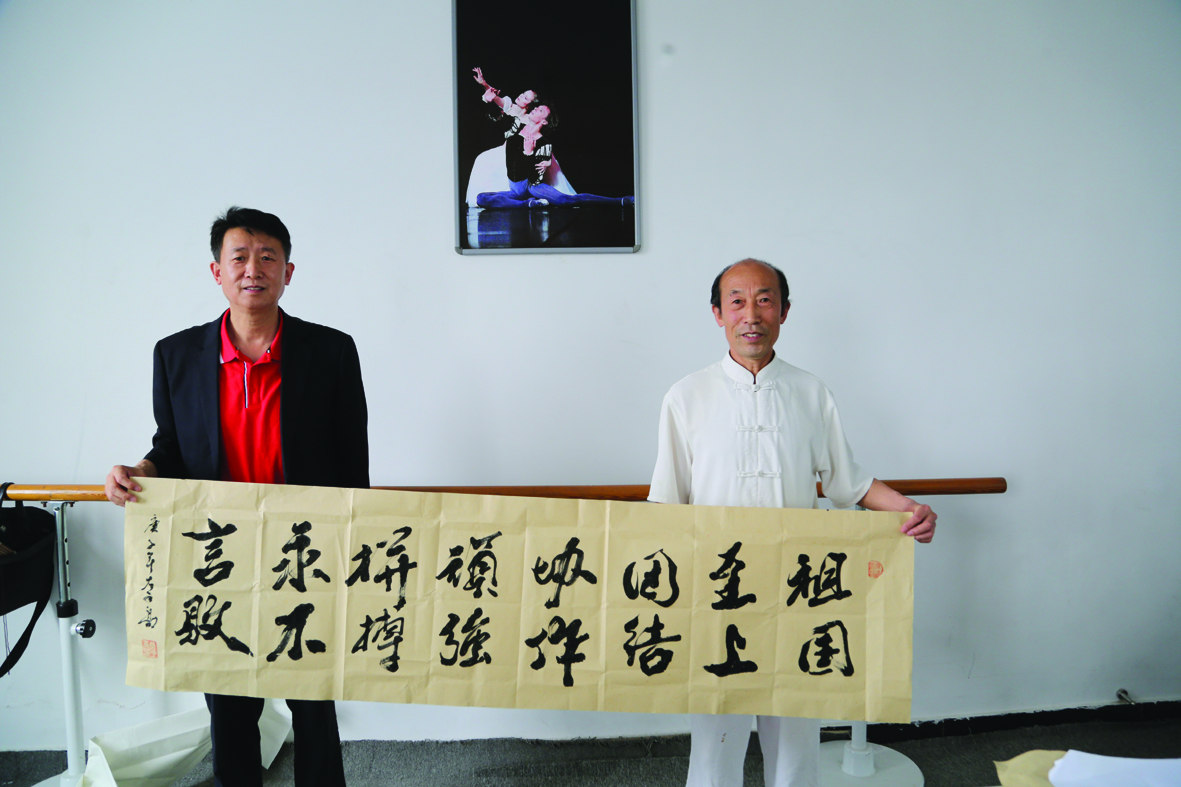 祖国
至上
团结
协作
顽强
拼搏
永不
言败
庚子年